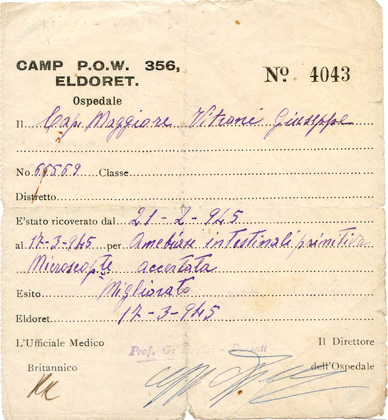 CAMP P.O.W. 356,
ELDORET.
No 4043
Ospedale
Il Cap. Maggiore Vitrani Giuseppe
No. 66569 Classe
Distretto
E'stato ricoverato dal 21-2-945
al 17-3-945 per Amebiasi intestinali primitiva
Microscop.te accertata
Esito Migliorato
Eldoret, 17-3-945
L'Ufficiale Medico Il Direttore
Britannico dell'Ospedale
Prof. G.